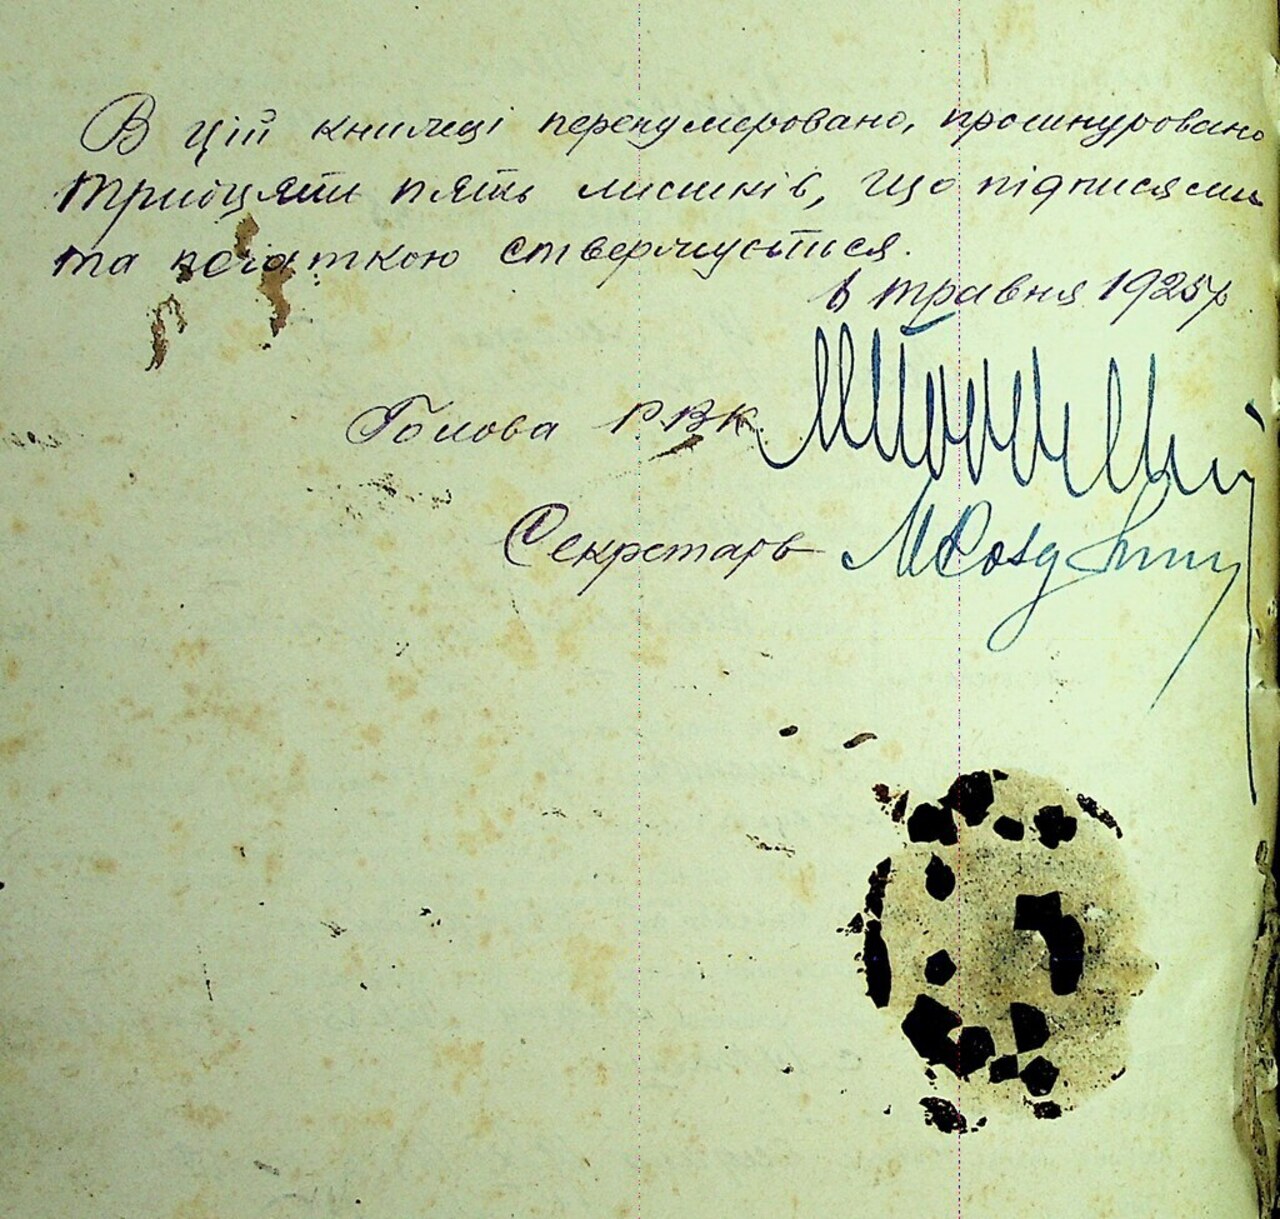 В цій книжці перенумеровано, прошнуровано
тридцять пять листків, що підписями
та печаткою ствержується.
травня 1925 р
Голова РВК.
Секретарь